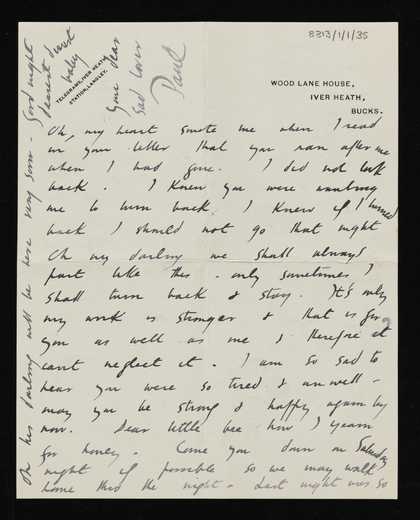 8213/1/1/35
WOOD LANE HOUSE,
IVER HEATH,
BUCKS.
TELEGRAMS, IVER HEATH
STATION, LANGLEY.
Oh, my heart smote me when I read
in your letter that you ran after me
when I had gone. I did not look
back. I knew you were
me to turn back. I knew if I turned
back I should not go that night
Oh my darling we shall always
part like this - only sometimes I
shall turn back & stay. It's only
my work is stronger & that is for
you as well as me & therefore it
can't neglect it. I am so sad to
hear you were so tired & unwell -
may you be strong & happy again by
now. Dear little bee how I yearn
for honey. Come you down on Saturday
night if possible so we may walk
home thro the night - Last night was so
Oh his darling will be here very soon. Good night
dearest
baby
your dear
sad lover
Paul